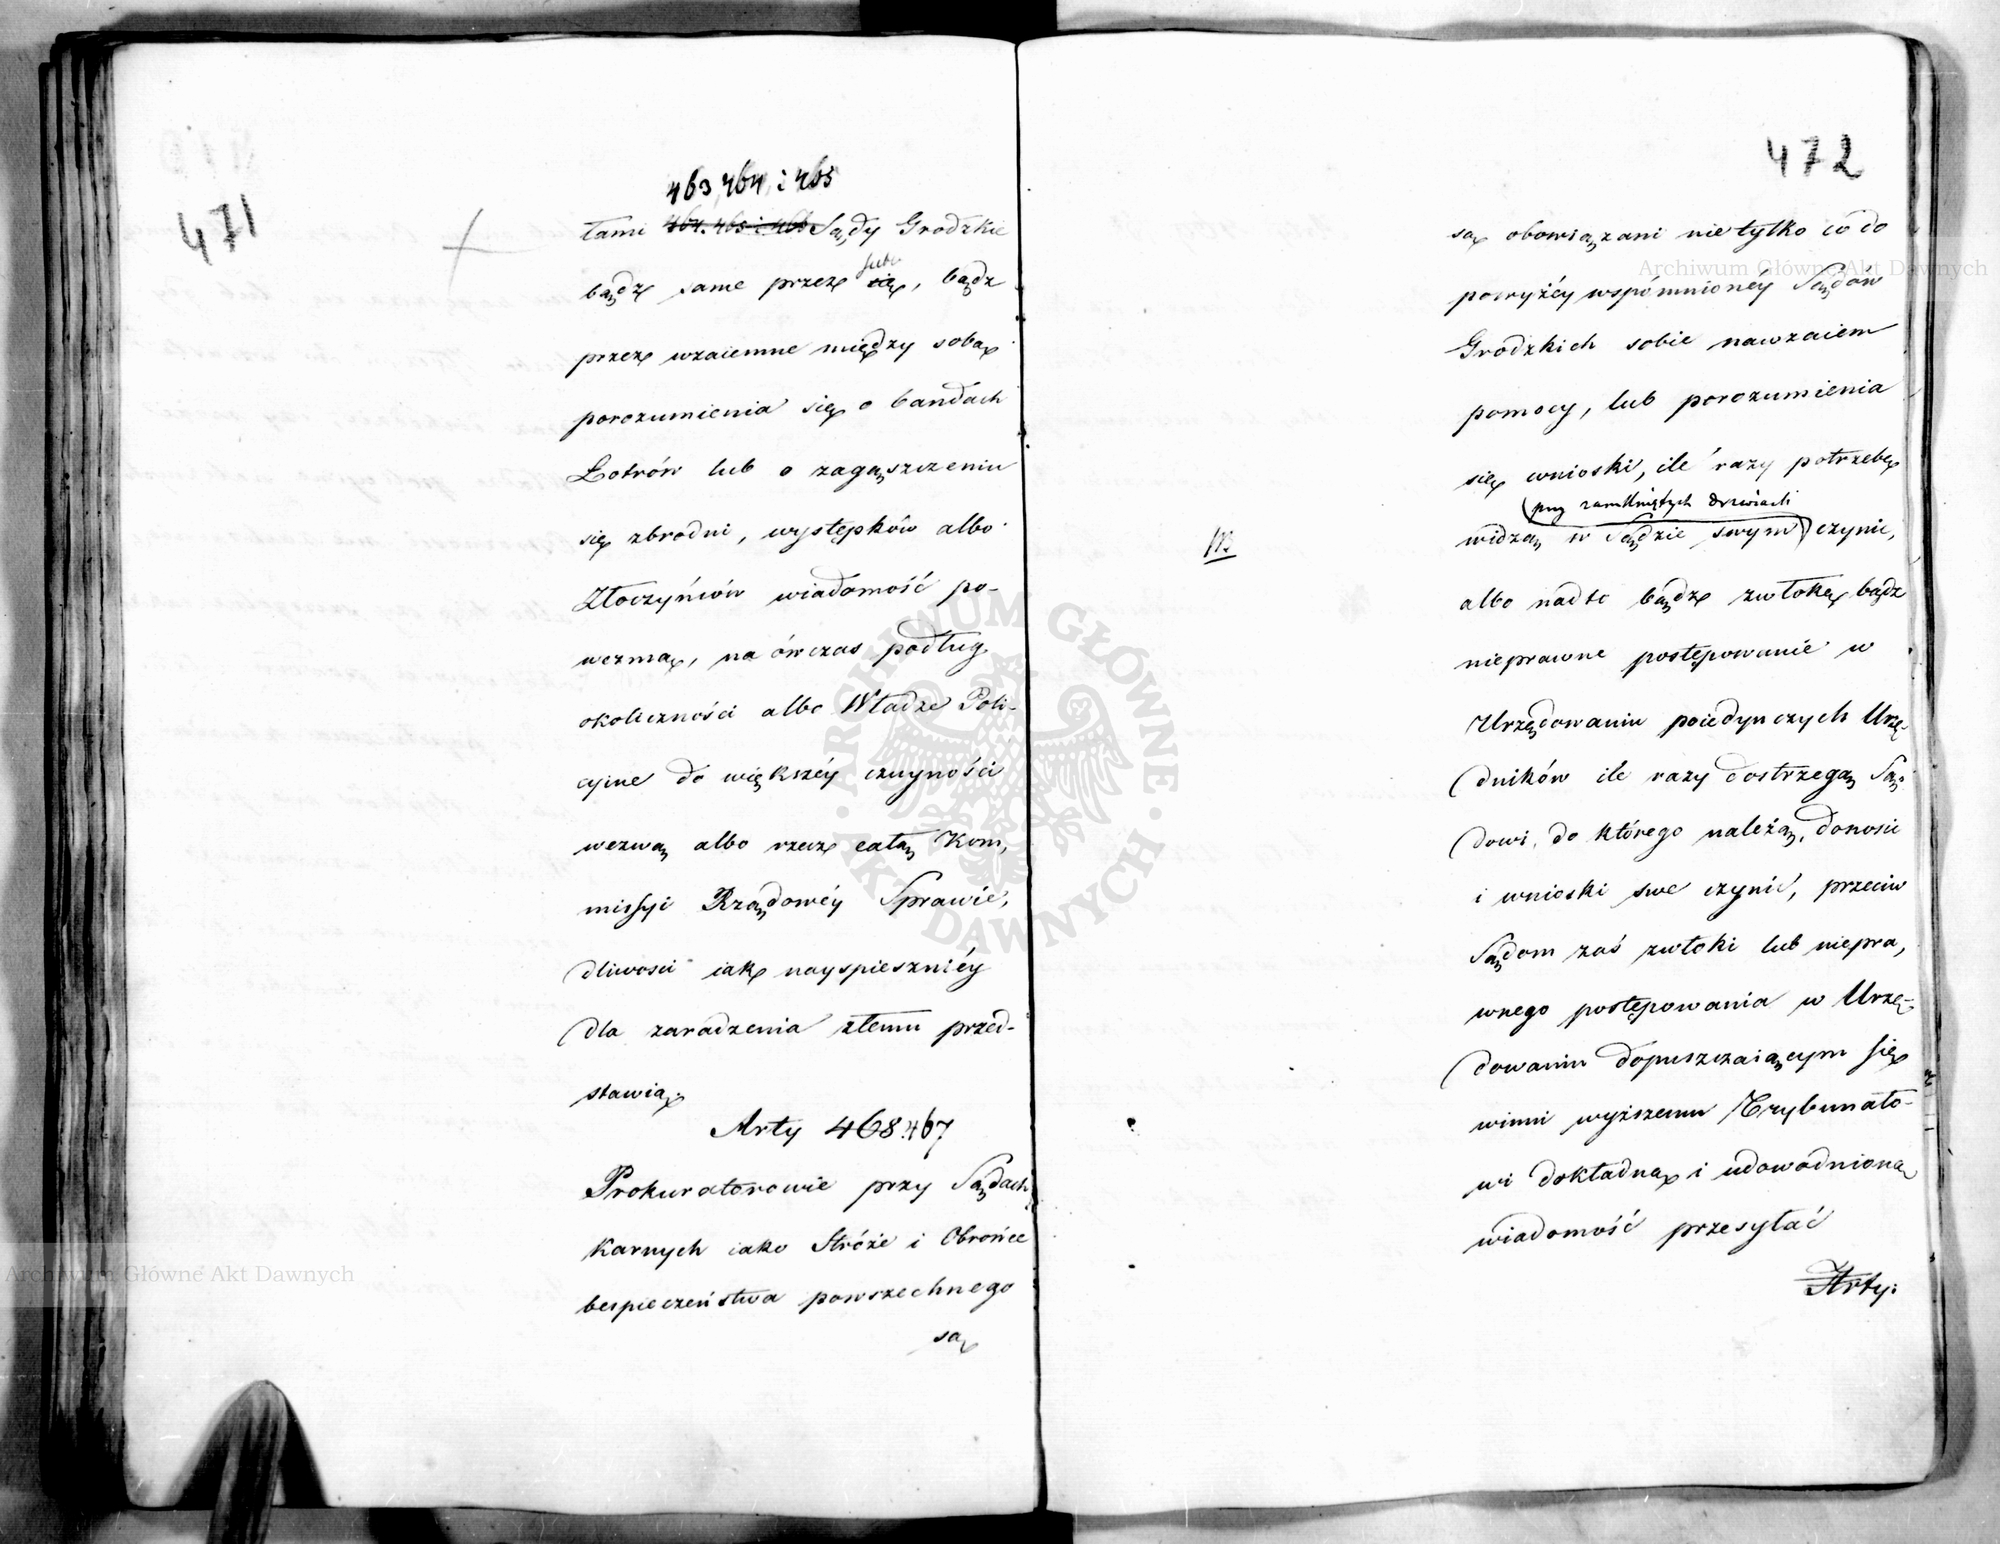 471
463, 464, i 465
łami 464. 465 i 466 Sądy Grodzkie
siebie
bądz same przez się, bądz
przez wzaiemne między sobą
porozumienia się o bandach
Łotrów lub o zagąszczeniu
się zbrodni, występków albo
Złoczyńców wiadomość po-
wezmą, na ówczas podług
okoliczności albo Władze Poli-
cyine do większéy czuyności
wezwą albo rzecz całą Kom,
missyi Rządowéy Sprawie,
dliwosci iak nayspieszniéy
dla zaradzenia złemu przed-
stawią.
Arty 468. 467
Prokuratorowie przy Sądach
Karnych iako Stróże i Obrońce
bespieczeństwa powszechnego
są
472
są obowiązani nie tylko co do
powyżéy wspómnionéy Sądów
Grodzkich sobie nawzaiem
pomocy, lub porozumienia
się wnioski, ile razy potrzebę
przy zamkniętych drzwiach
widzą w Sądzie swym czynić,
albo nadto bądz zwłokę bądz
nieprawne postępowanie w
Urzędowaniu poiedynczych Urzę-
dników ile razy dostrzegą Są-
dowi, do którego należą, donosić
i wnioski swe czynić, przeciw
Sądom zaś zwłoki lub niepra,
wnego postępowania w Urzę-
dowaniu dopuszczaiącym się
winni wyższemu Trybunało-
wi dokładną i udowodnioną
wiadomość przesyłać
Arty:
Archiwum Główne Akt Dawnych
Archiwum Główne Akt Dawnych
ARCHIWUM GŁÓWNE · AKT DAWNYCH ·